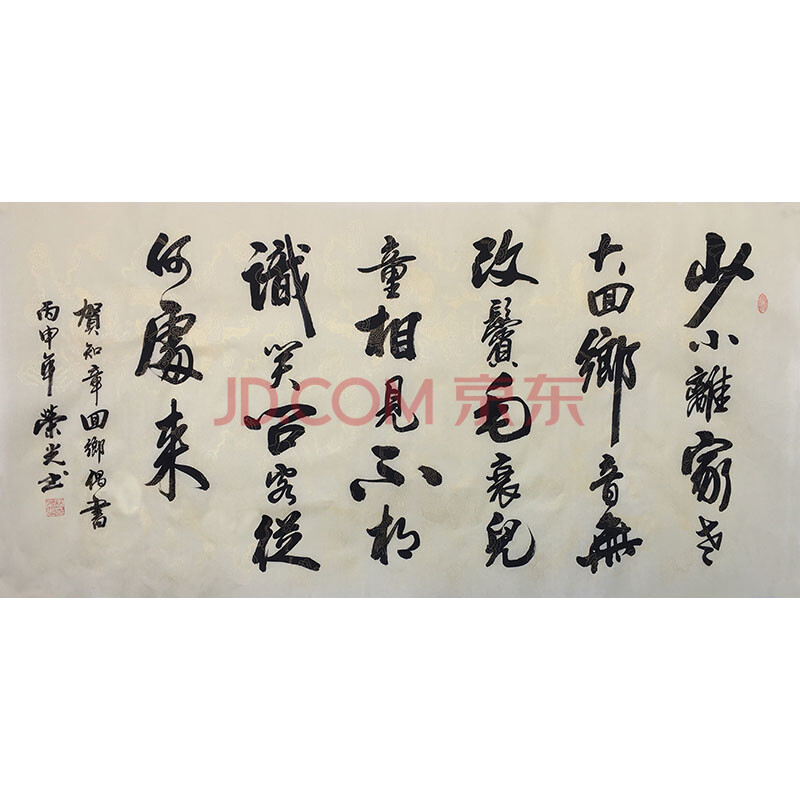 少小離家老
大回鄉音無
改鬢毛衰兒
童相見不相
識笑問客從
何處来
賀知章回鄉偶書
丙申年榮光书
JD.COM 京东